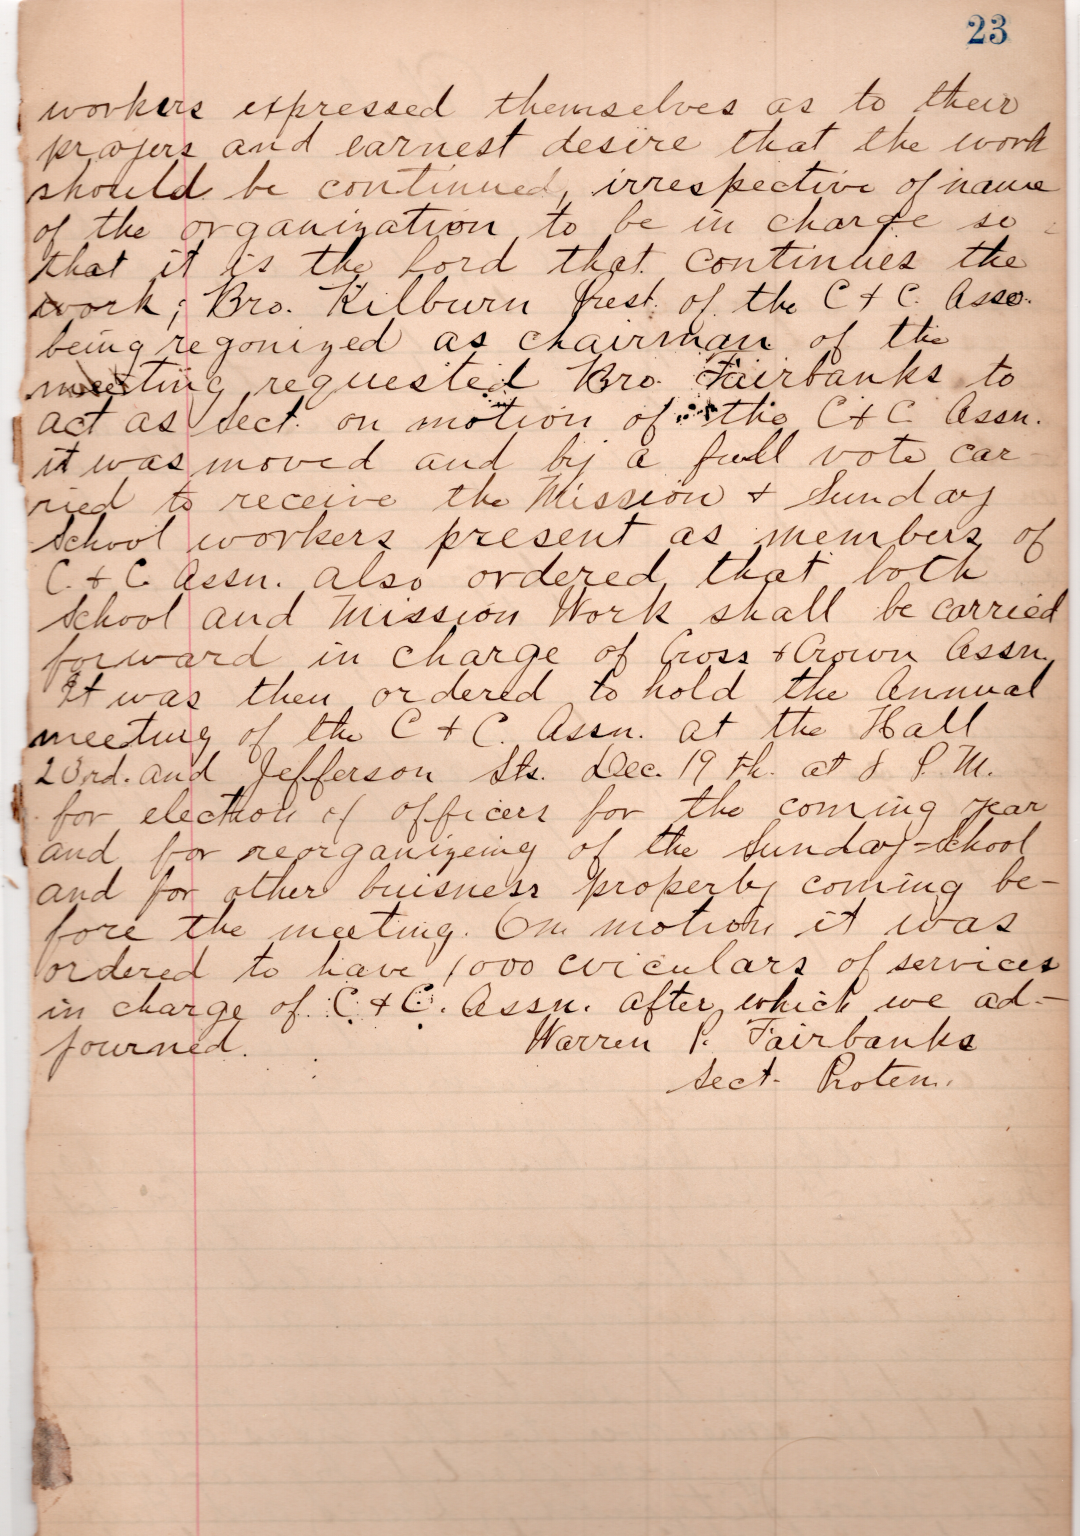 23
workers expressed themselves as to their
prayers and earnest desire that the work
should be continued, irrespective of name
of the organization to be in charge so
that it is the Lord that continues the
work; Bro. Kilburn Prest. of the C & C. Asso.
being regonized as chairman of the
meeting requested Bro. Fairbanks to
act as Sect. on motion of the C & C Assn.
it was moved and by a full vote car-
ried to receive the Mission & Sunday
School workers present as members of
C. & C. Assn. also ordered that both
School and Mission Work shall be carried
forward in charge of Cross & Crown Assn.
It was then ordered to hold the Annual
meeting of the C & C. Assn. at the Hall
23rd. and Jefferson Sts. Dec. 19th. at 8 P.M.
for election of officers for the coming year
and for reorganizeing of the Sunday-School
and for other buisness property coming be-
fore the meeting. On motion it was
ordered to have 1000 cviculars of services
in charge of C & C. Assn. after which we ad-
journed. Warren P. Fairbanks
Sect. Protem.